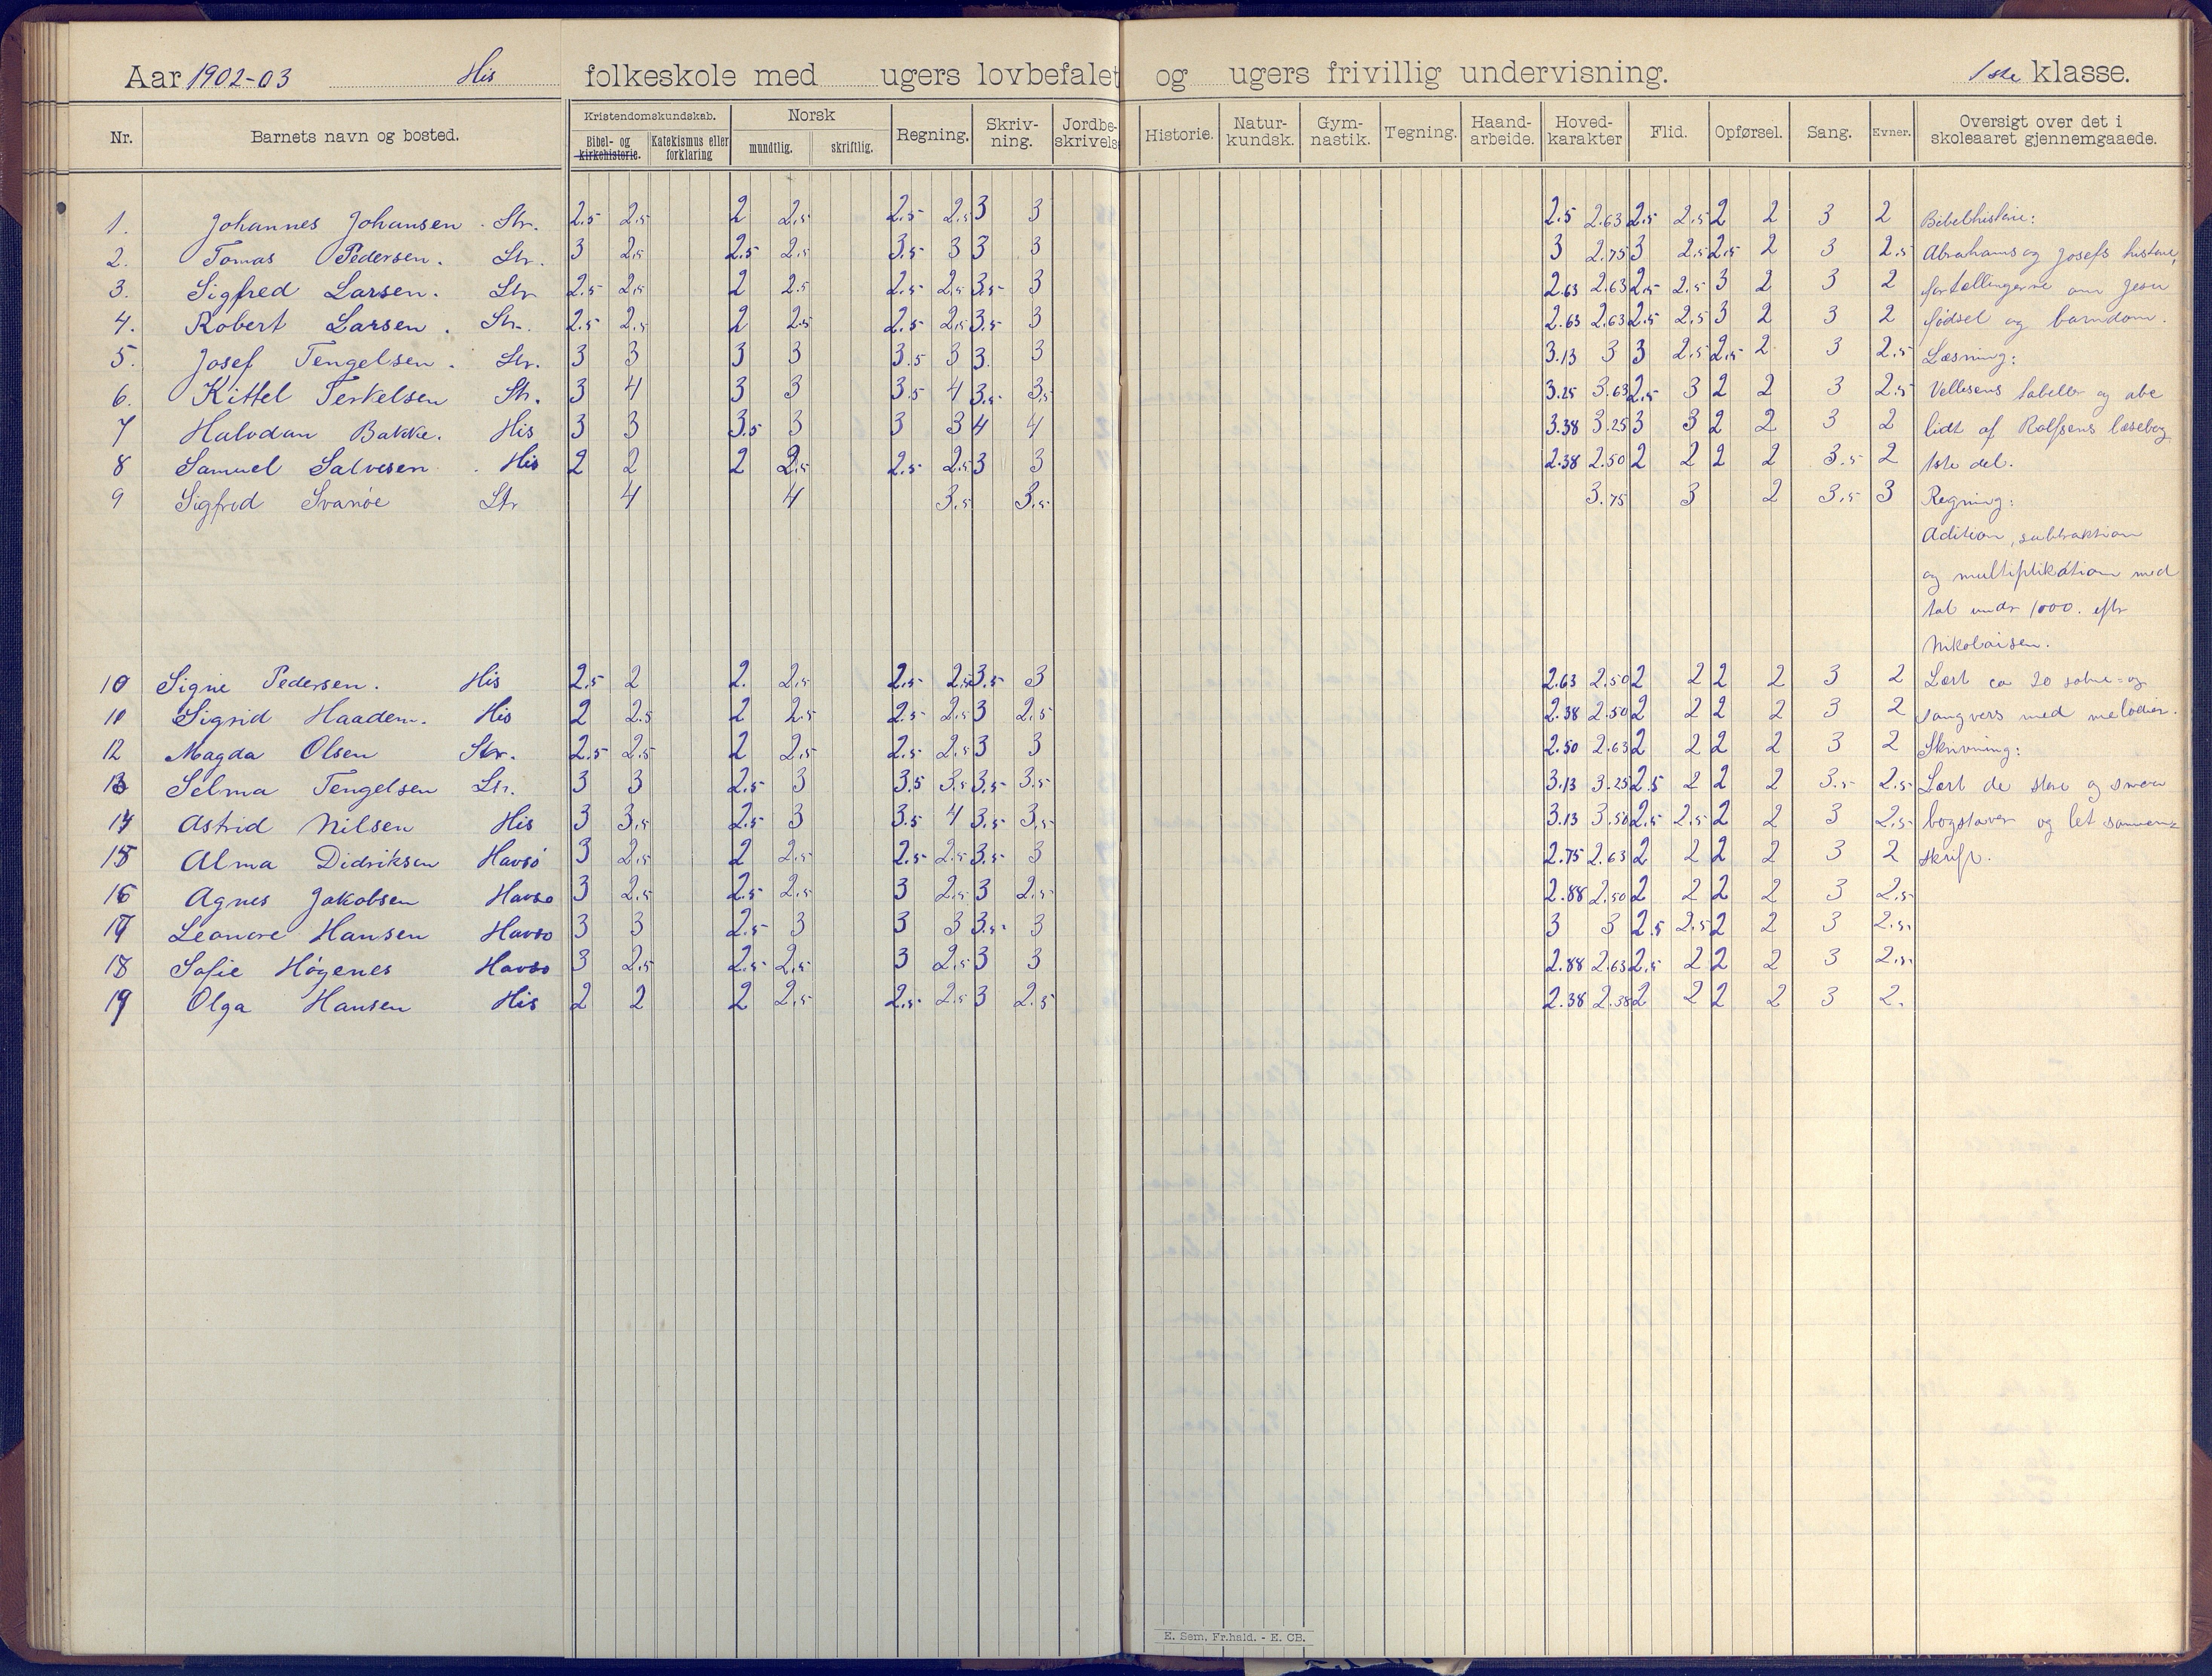 Aar 1902-03 His folkeskole med ugers lovbefalet og ugers frivillig undervisning. 1ste klasse.
Nr. Barnets navn og bosted. Kristendomskundskab. Bibel- og kirkehistorie. Katekismus eller forklaring Norsk mundtlig. skriftlig. Regning. Skriv-ning. Jordbe-skrivels Historie. Natur-kundsk. Gym-nastik. Tegning. Haand-arbeide. Hoved-karakter Flid. Opførsel. Sang. Evner. Oversigt over det i skoleaaret gjennemgaaede.
1. Johannes Johansen. Str. 2.5 2.5 2 2.5 2.5 2.5 3 3 2.5 2.63 2.5 2.5 2 2 3 2 Bibelhistorie:
2. Tomas Pedersen. Str. 3 2.5 2.5 2.5 3.5 3 3 3 3 2.75 3 2.5 2.5 2 3 2.5 Abrahams og Josefs historie,
3. Sigfred Larsen. Str 2.5 2.5 2 2.5 2.5 2.5 3.5 3 2.63 2.63 2.5 2.5 3 2 3 2 fortællingerne om Jesu
4. Robert Larsen. Str. 2.5 2.5 2 2.5 2.5 2.5 3.5 3 2.63 2.63 2.5 2.5 3 2 3 2 fødsel og barndom.
5. Josef Tengelsen. Str. 3 3 3 3 3.5 3 3. 3 3.13 3 3 2.5 2.5 2 3 2.5 Læsning:
6. Kittel Terkelsen Str. 3 4 3 3 3.5 4 3.5 3.5 3.25 3.63 2.5 3 2 2 3 2.5 tabeller og abc
7 Halvdan Bakke. His 3 3 3.5 3 3 3 4 4 3.38 3.25 3 3 2 2 3 2 lidt af Rolfsens læsebog
8 Samuel Salvesen. His 2 2 2 2.5 2.5 2.5 3 3 2.38 2.50 2 2 2 2 3.5 2 1ste del.
9 Sigfred Svanøe Str 4 4 3.5 3.5 3.75 3 2 3.5 3 Regning:
Adition, subtraktion
og multiplikation med
tal under 1000. eftr
Nikolaisen.
10 Signe Pedersen. His 2.5 2 2. 2.5 2.5 2.5 3.5 3 2.63 2.50 2 2 2 2 3 2 Lært ca 20 salme- og
11 Sigrid Haadem. His 2 2.5 2 2.5 2.5 2.5 3 2.5 2.38 2.50 2 2 2 2 3 2 sangvers med melodier.
12 Magda Olsen Str. 2.5 2.5 2 2.5 2.5 2.5 3 3 2.50 2.63 2 2 2 2 3 2 Skrivning:
13 Selma Tengelsen Str. 3 3 2.5 3 3.5 3.5 3.5 3.5 3.13 3.25 2.5 2 2 2 3.5 2.5 Lært de store og smaa
14 Astrid Nilsen His 3 3.5 2.5 3 3.5 4 3.5 3.5 3.13 3.50 2.5 2.5 2 2 3 2.5 bogstaver og let sammen=
15 Alma Didriksen Havsø 3 2.5 2 2.5 2.5 2.5 3.5 3 2.75 2.63 2 2 2 2 3 2 skrift.
16 Agnes Jakobsen Havsø 3 2.5 2.5 2.5 3 2.5 3 2.5 2.88 2.50 2 2 2 2 3 2.5
17 Leonore Hansen Havsø 3 3 2.5 3 3 3 3.5 3 3 3 2.5 2.5 2 2 3 2.5
18 Sofie Høgenes Havsø 3 2.5 2.5 2.5 3 2.5 3 3 2.88 2.63 2.5 2 2 2 3 2.5
19 Olga Hansen His 2 2 2 2.5 2.5 2.5 3 2.5 2.38 2.38 2 2 2 2 3 2.
E. Sem, Fr.hald. - E. CB.